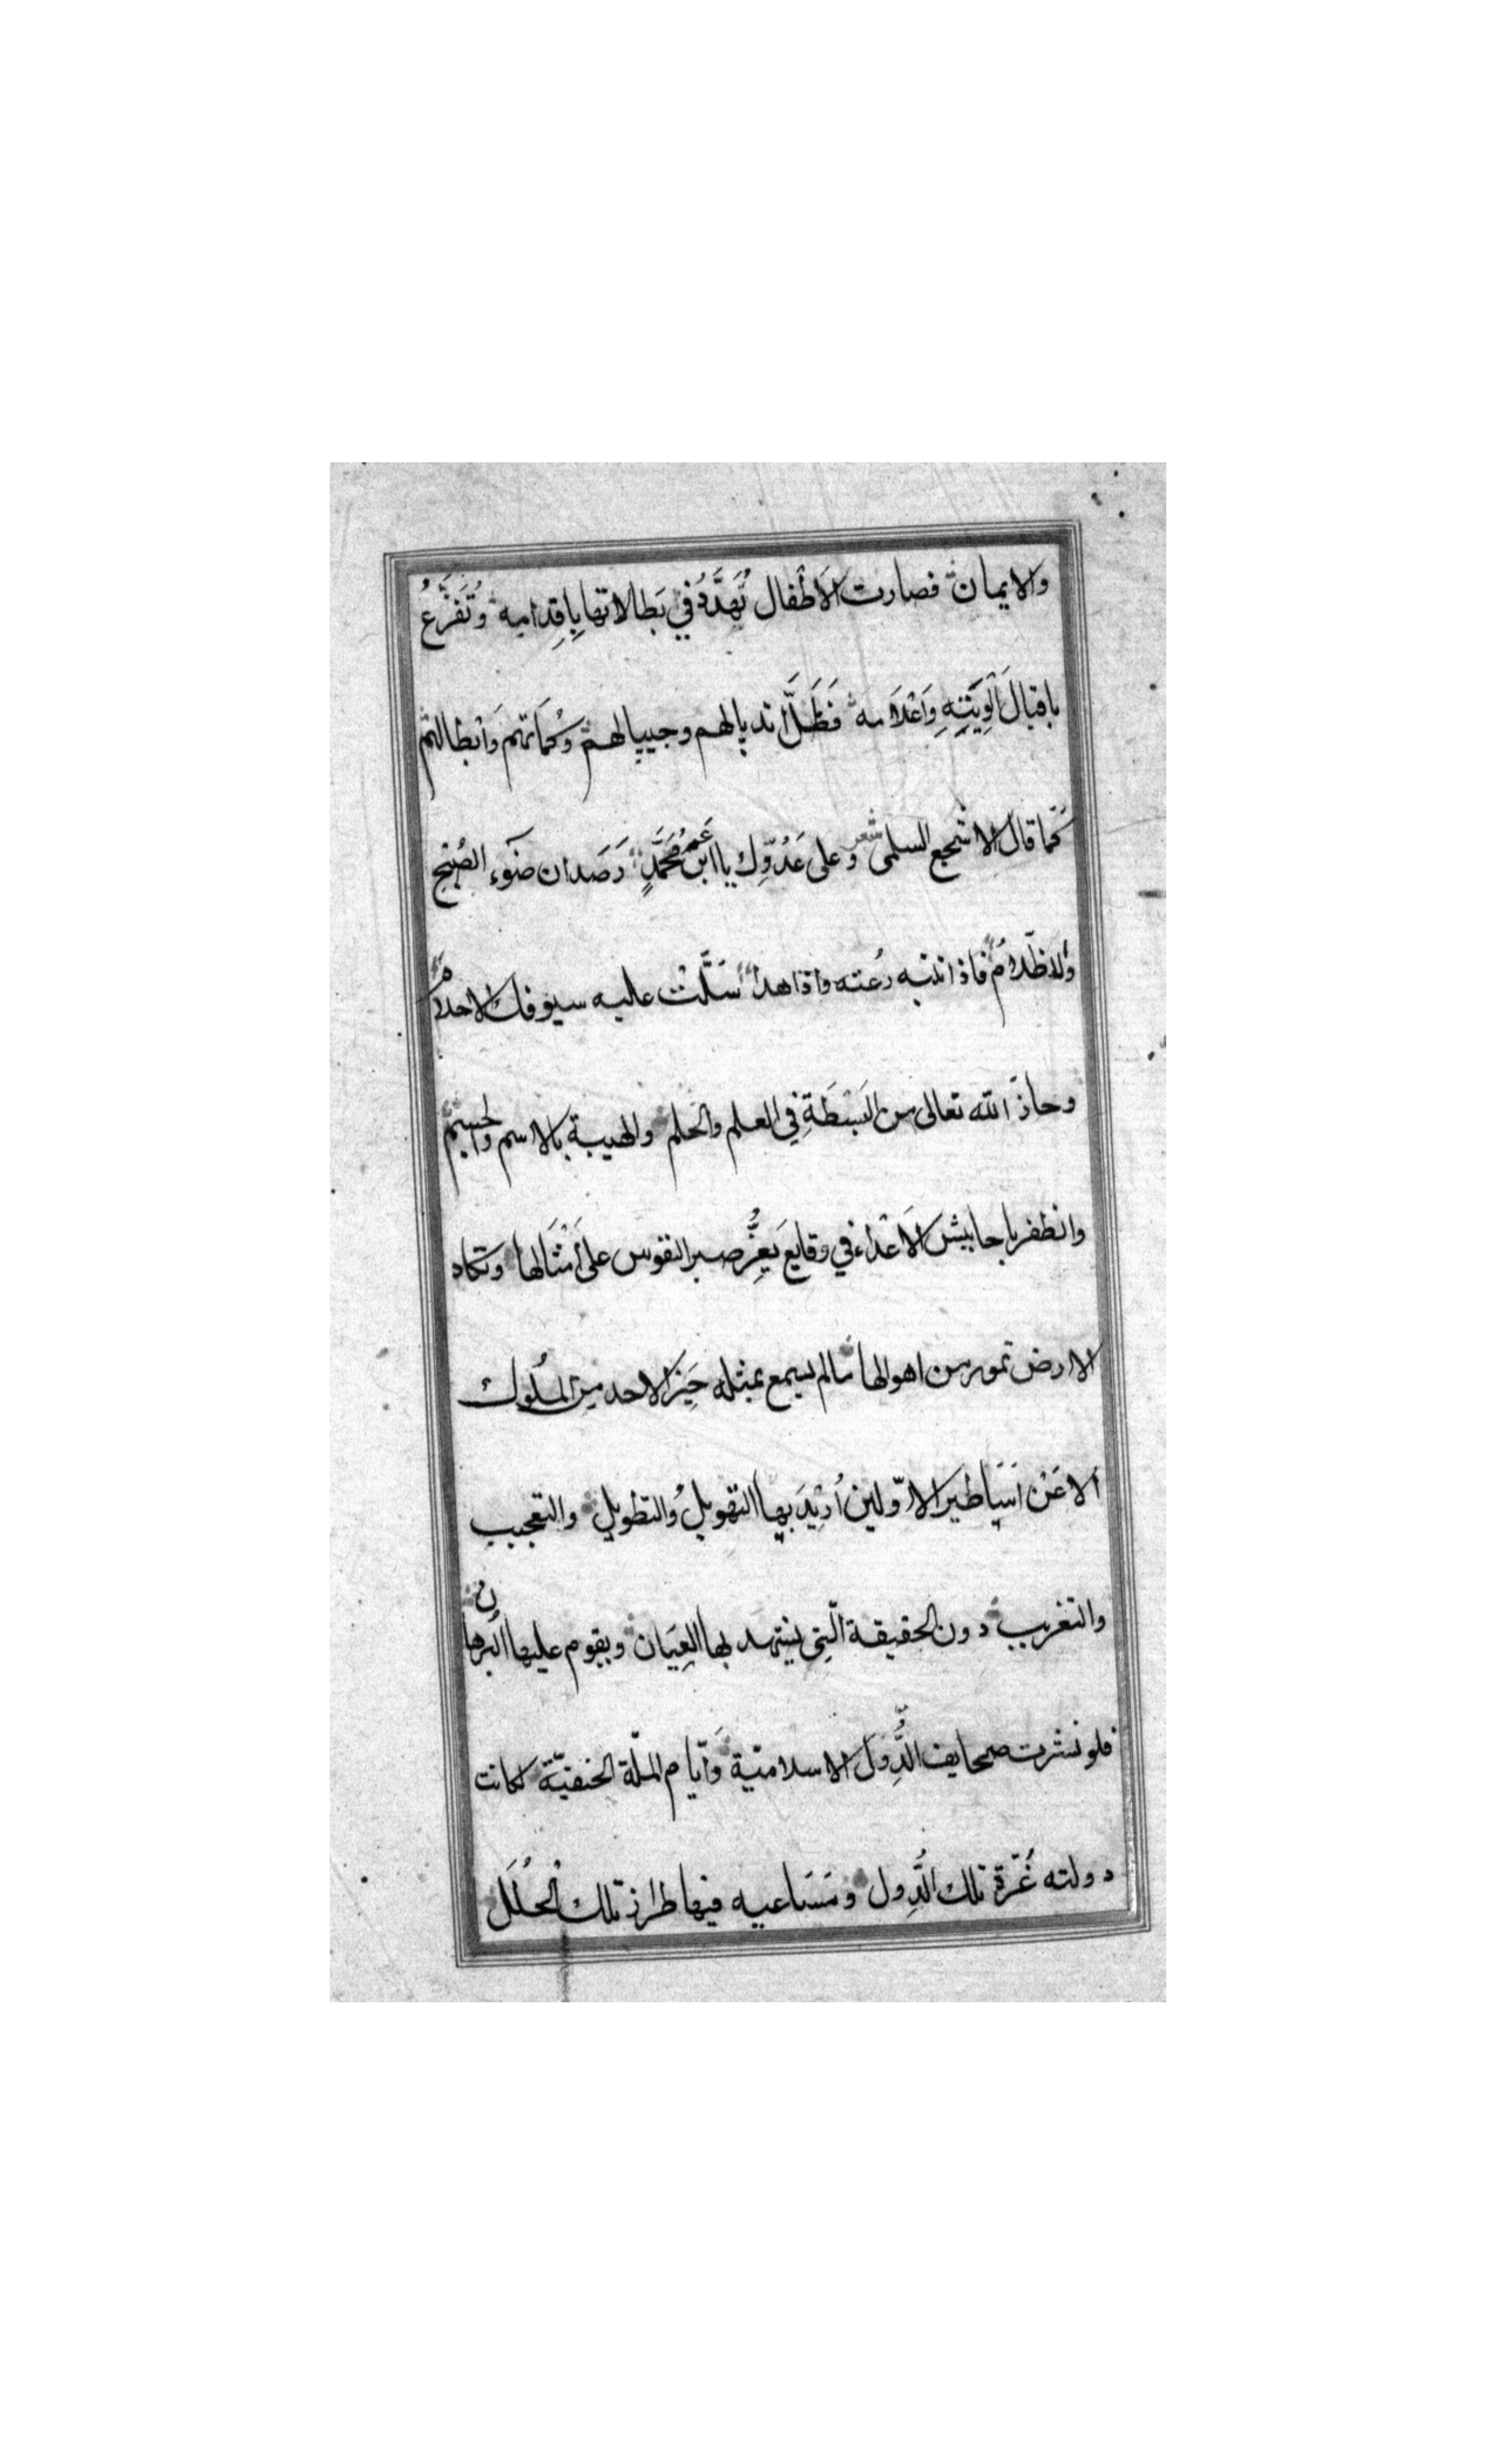 والايمان فصارت الاَطْفال تُهَدَّدُ في بَطالاتها بِاِقِدامِه وَتُفَزَّعُ
باقبالَ اَلْوِيَتِهِ وَاَعْلَامه فَظَلَّ اندیالهم وجیپالهم وَكُمَاتهم وَاَبْطالهم
كَمَا قال الاشجع السلمى شعر وعلى عَدُوِّك يا ابنَ عَمِّ مُحَمَّدٍ رَصَدان ضَوء الصُبْح
وَالاظّلامُ فاذا انتبه رُعته واذا هدأ سَلَّتْ عليه سيوفك الاحلامُ
وحاذَ الله تعالى من البَسْطَةِ في العلم والحلم والهيبة بالاسم والجسم
وانظفر باحابيش الاَعْداء في وقايع يَعِزُّ صبر النفوس على اَمْثَالها وتكاد
الارض تمور من اهوالها مالم يسمع بمثله حَيِّز الاحد مِنَ المُلُوك
الا عَنْ اَسَاطير الاوّلين اُرِيْدَ بها التهويلُ والتطويل والتعجيب
والتغريب دون الحقيقة الّتِي يشهد بها العِيَان ويقوم عليها البُرهان
فلو نشرت صحايف الدُّوَل الاسلاميّة وَاَيّام الملّة الحنفيّة لكانت
دولته غُرّة تلك الدُّول وَمَسَاعيه فيها طراز تلك الْحُلَلَ